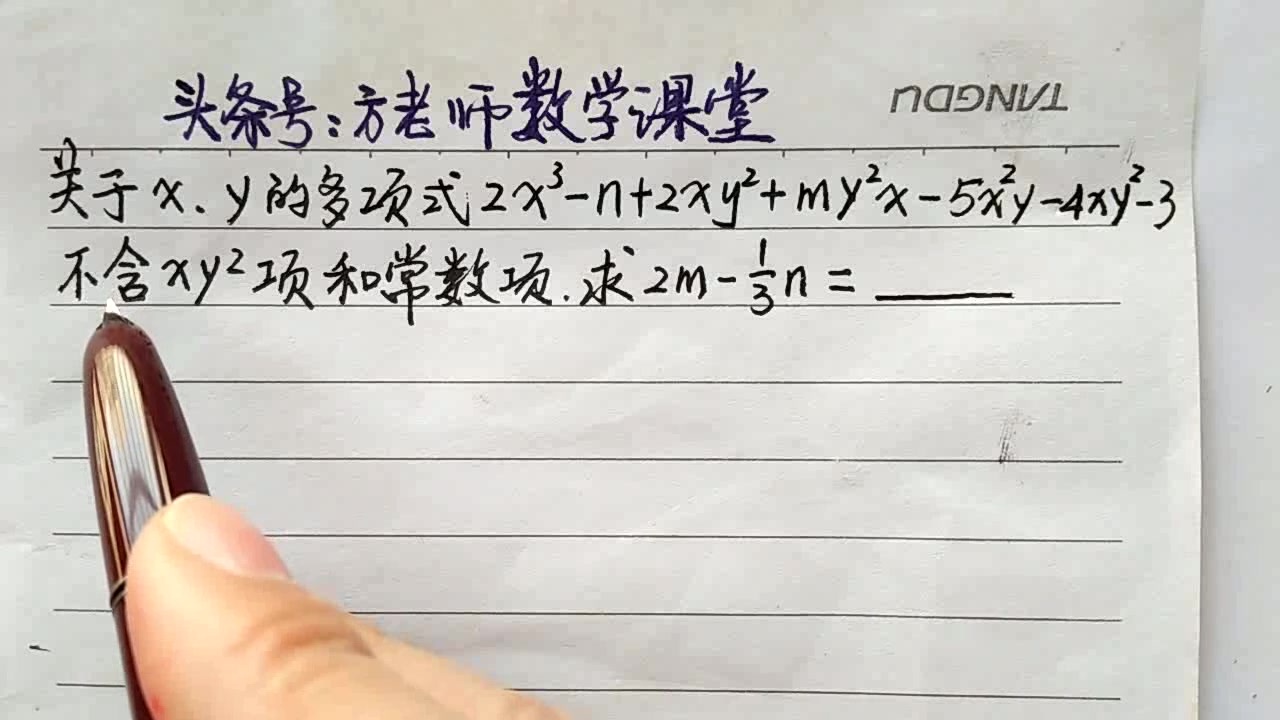 头条号:方老师数学课堂
TANGDU
关于x、y的多项式2x³-n+2xy²+my²x-5x²y-4xy²-3
不含xy²项和常数项.求2m-\frac{1}{3}n=____